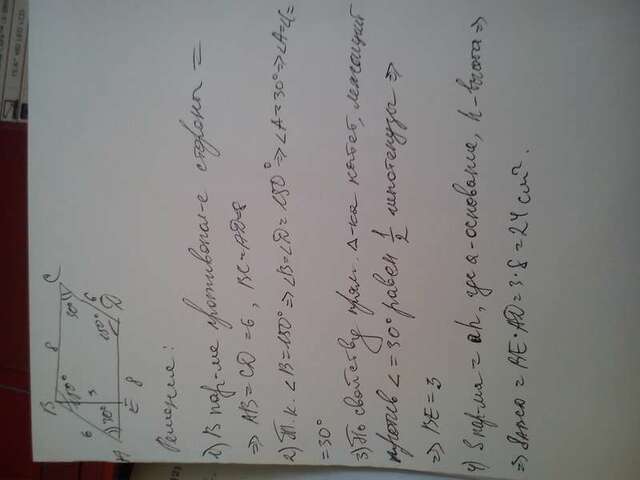 B 8 C
6 150° 30°
3 150° 6
30°
A E 8 D
Решение:
1) В пар-ме противопол-е стороны =
⇒ AB = CD = 6, BC = AD = 8
2) Т.к. ∠B = 150° ⇒ ∠B = ∠D = 150° ⇒ ∠A = 30° ⇒ ∠A = ∠C =
= 30°
3) По свойству прям. Δ-ка катет, лежащий
против ∠ = 30° равен 1/2 гипотенузы ⇒
⇒ BE = 3
4) S пар-ма = ah, где a - основание, h - высота ⇒
⇒ = AE · AD = 3 · 8 = 24 см².